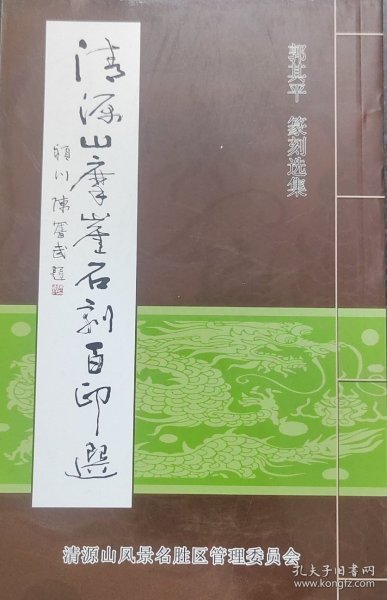 郭其平 篆刻选集
清源山摩崖石刻百印选
颍川陈
题
清源山风景名胜区管理委员会
孔夫子旧书网
www.kongfz.com